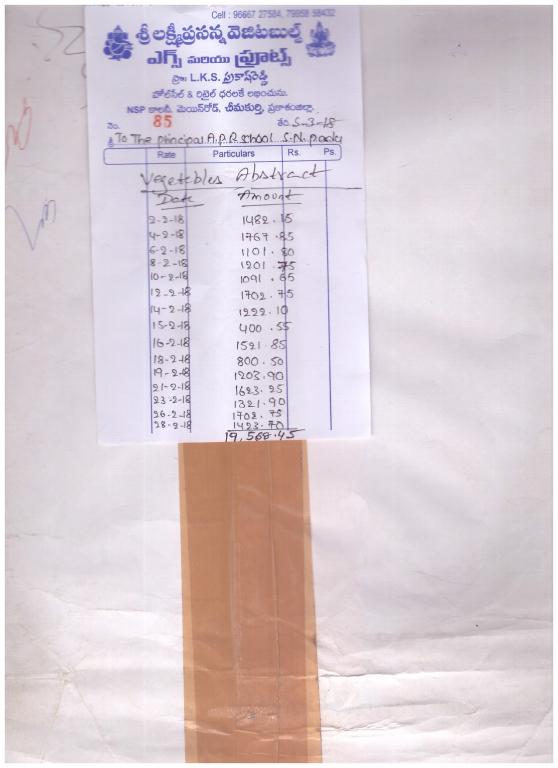 Cell : 96667 27584, 79958 58432
శ్రీ లక్ష్మీప్రసన్న వెజిటబుల్స్
ఎగ్స్ మరియు ఫ్రూట్స్
ప్రొ: L.K.S. ప్రకాష్‌రెడ్డి
హోల్‌సేల్ & రిటైల్ ధరలకే లభించును.
NSP కాలనీ, మెయిన్‌రోడ్, చీమకుర్తి, ప్రకాశంజిల్లా.
నెం. 85 తేది. 5-3-18
శ్రీ To The principal A.P.R school S.N.padu
Rate Particulars Rs. Ps.
Vegetables Abstract
Date Amount
2-2-18 1482.15
4-2-18 1767.85
6-2-18 1101.80
8-2-18 1201.75
10-2-18 1091.65
12-2-18 1702.75
14-2-18 1222.10
15-2-18 400.55
16-2-18 1521.85
18-2-18 800.50
19-2-18 1203.90
21-2-18 1623.25
23-2-18 1321.90
26-2-18 1702.75
28-2-18 1423.70
19,568.45